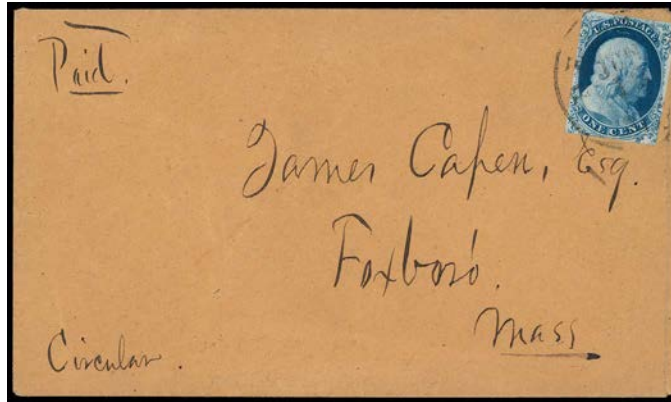 Paid.
U.S. POSTAGE
ONE CENT
James Capen, Esq.
Foxboro'.
Mass
Circular.